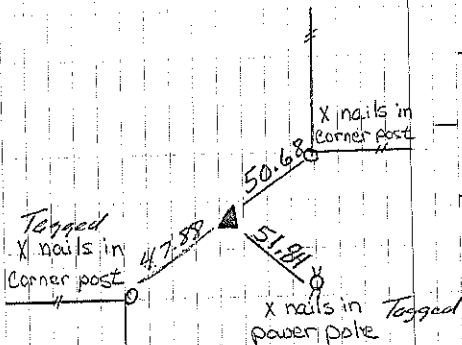 X nails in
Corner post
50.68
Tagged
X nails in
Corner post
47.88
51.84
X nails in
power pole
Tagged